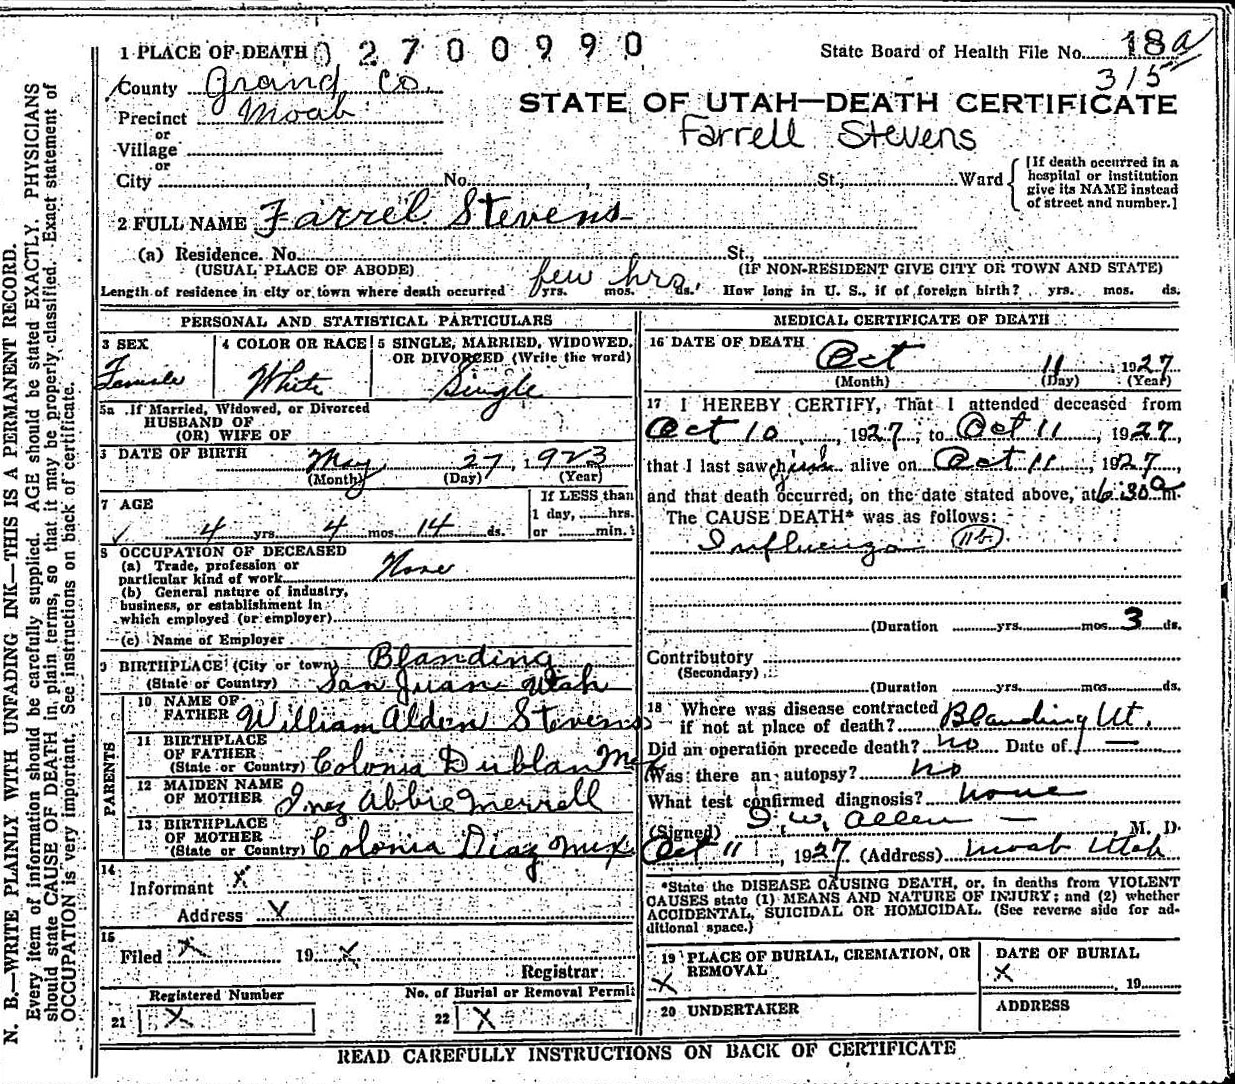 1 PLACE OF DEATH 02700990
State Board of Health File No. 18a
315
County Grand Co.
STATE OF UTAH—DEATH CERTIFICATE
Precinct Moab
Farrell Stevens
or
Village
or
City No. , St., Ward
[If death occurred in a
hospital or institution
give its NAME instead
of street and number.]
2 FULL NAME Farrel Stevens
(a) Residence. No. St.,
(USUAL PLACE OF ABODE) (IF NON-RESIDENT GIVE CITY OR TOWN AND STATE)
Length of residence in city or town where death occurred few hrs. yrs. mos. ds. How long in U. S., if of foreign birth? yrs. mos. ds.
PERSONAL AND STATISTICAL PARTICULARS
3 SEX
Female
4 COLOR OR RACE
White
5 SINGLE, MARRIED, WIDOWED,
OR DIVORCED (Write the word)
Single
5a If Married, Widowed, or Divorced
HUSBAND OF
(OR) WIFE OF
DATE OF BIRTH May 27, 1923
(Month) (Day) (Year)
7 AGE
4 yrs. 4 mos. 14 ds.
If LESS than
1 day, hrs.
or min.
8 OCCUPATION OF DECEASED
(a) Trade, profession or
particular kind of work None
(b) General nature of industry,
business, or establishment in
which employed (or employer)
(c) Name of Employer
9 BIRTHPLACE (City or town) Blanding
(State or Country) San Juan Utah
PARENTS
10 NAME OF
FATHER William Alden Stevens
11 BIRTHPLACE
OF FATHER
(State or Country) Colonia Dublan Mex
12 MAIDEN NAME
OF MOTHER Inez Abbie Merrell
13 BIRTHPLACE
OF MOTHER
(State or Country) Colonia Diaz Mex.
14
Informant X
Address X
15
Filed X 19 X
Registrar
Registered Number
21 X
No. of Burial or Removal Permit
22 X
MEDICAL CERTIFICATE OF DEATH
16 DATE OF DEATH
Oct 11, 1927
(Month) (Day) (Year)
17 I HEREBY CERTIFY, That I attended deceased from
Oct 10, 1927, to Oct 11, 1927,
that I last saw him alive on Oct 11, 1927,
and that death occurred, on the date stated above, at 6 30 a m.
The CAUSE DEATH* was as follows:
Influenza 11b
(Duration yrs. mos. 3 ds.
Contributory
(Secondary)
(Duration yrs. mos. ds.
18 Where was disease contracted
if not at place of death? Blanding Ut.
Did an operation precede death? no Date of —
Was there an autopsy? no
What test confirmed diagnosis? none
(Signed) I. W. Allen — M. D.
Oct 11, 1927. (Address) Moab Utah
*State the DISEASE CAUSING DEATH, or, in deaths from VIOLENT
CAUSES state (1) MEANS AND NATURE OF INJURY; and (2) whether
ACCIDENTAL, SUICIDAL OR HOMICIDAL. (See reverse side for ad-
ditional space.)
19 PLACE OF BURIAL, CREMATION, OR
REMOVAL
X
DATE OF BURIAL
X , 19
20 UNDERTAKER
ADDRESS
READ CAREFULLY INSTRUCTIONS ON BACK OF CERTIFICATE
N. B.—WRITE PLAINLY WITH UNFADING INK—THIS IS A PERMANENT RECORD.
Every item of information should be carefully supplied. AGE should be stated EXACTLY. PHYSICIANS
should state CAUSE OF DEATH in plain terms, so that it may be properly classified. Exact statement of
OCCUPATION is very important. See instructions on back of certificate.